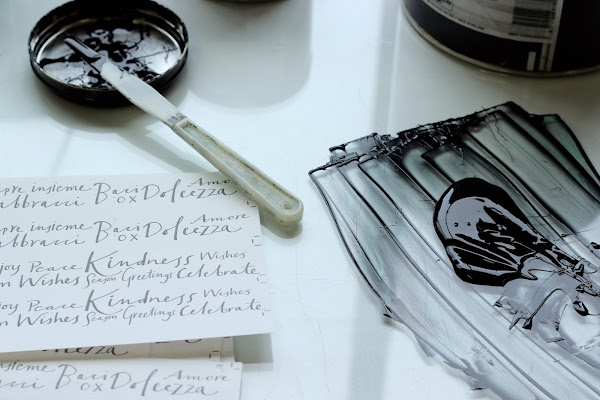 pre insieme Baci Dolcezza Amore
abbracci ox
pre insieme Baci Dolcezza Amore
abbracci ox
joy Peace Kindness Wishes
m Wishes Season Greetings Celebrate
joy Peace Kindness Wishes
m Wishes Season Greetings Celebrate
insieme Baci Dolcezza Amore
cci ox